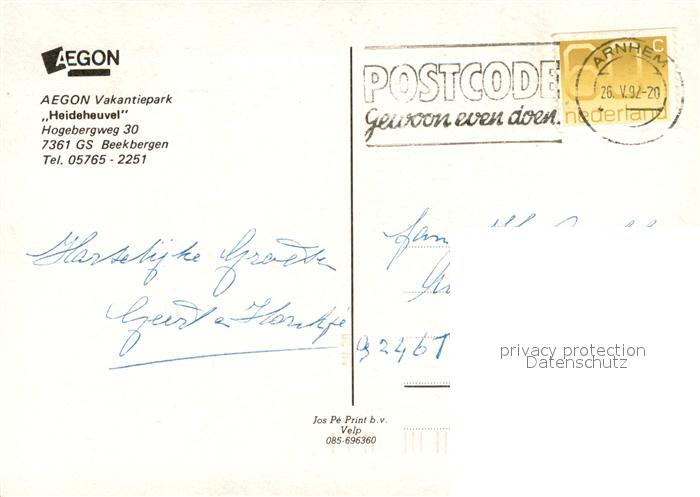 AEGON
AEGON Vakantiepark
„Heideheuvel"
Hogebergweg 30
7361 GS Beekbergen
Tel. 05765 - 2251
POSTCODE
Gewoon even doen.
60 c
nederland
ARNHEM
26. V.92-20
Hartelijke Groeten
Geert en
Fam
9246
privacy protection
Datenschutz
Jos Pé Print b.v.
Velp
085-696360